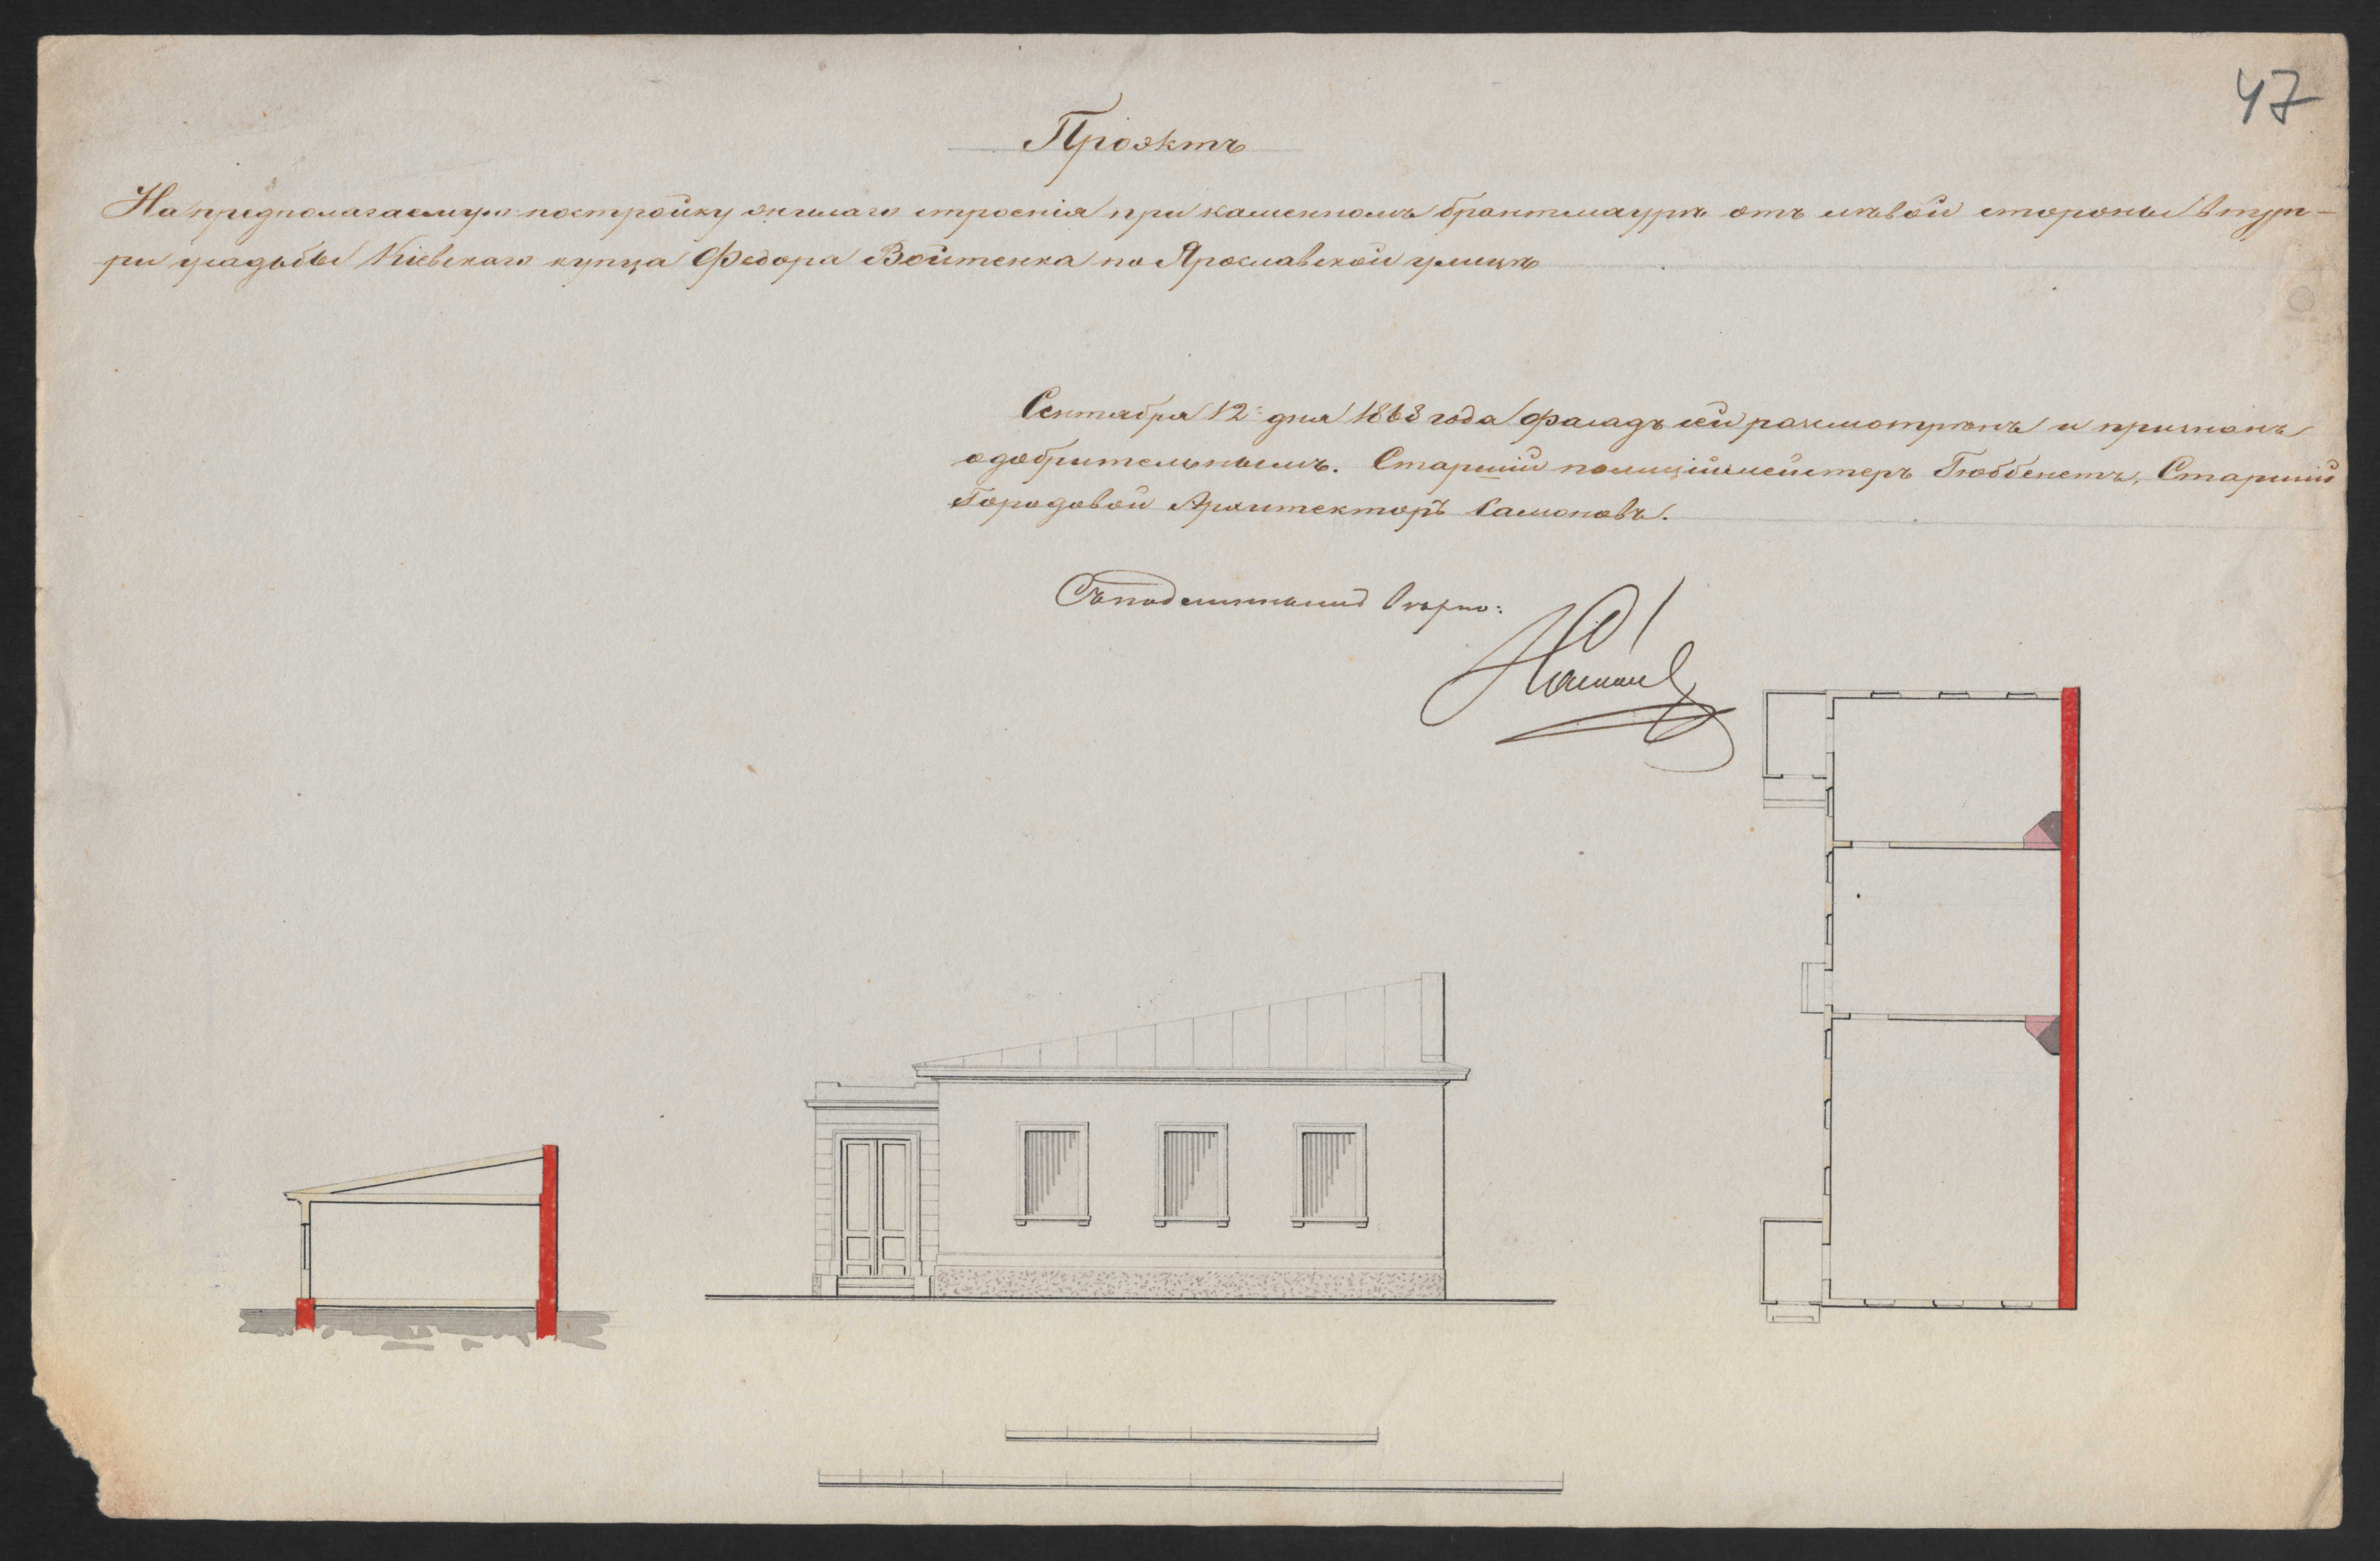 47
Проэктъ
На предполагаемую постройку жилаго строенія при каменномъ брантмаурѣ отъ лѣвой стороны внут-
ри усадьбы Кіевскаго купца Федора Войтенка по Ярославской улицѣ
Сентября 12 дня 1868 года фасадъ сей разсмотрѣнъ и признанъ
одобрительнымъ. Старшій полиціймейстеръ Гюббенетъ, Старшій
Городовой Архитекторъ Самоновъ.
Съ подлиннымъ вѣрно: